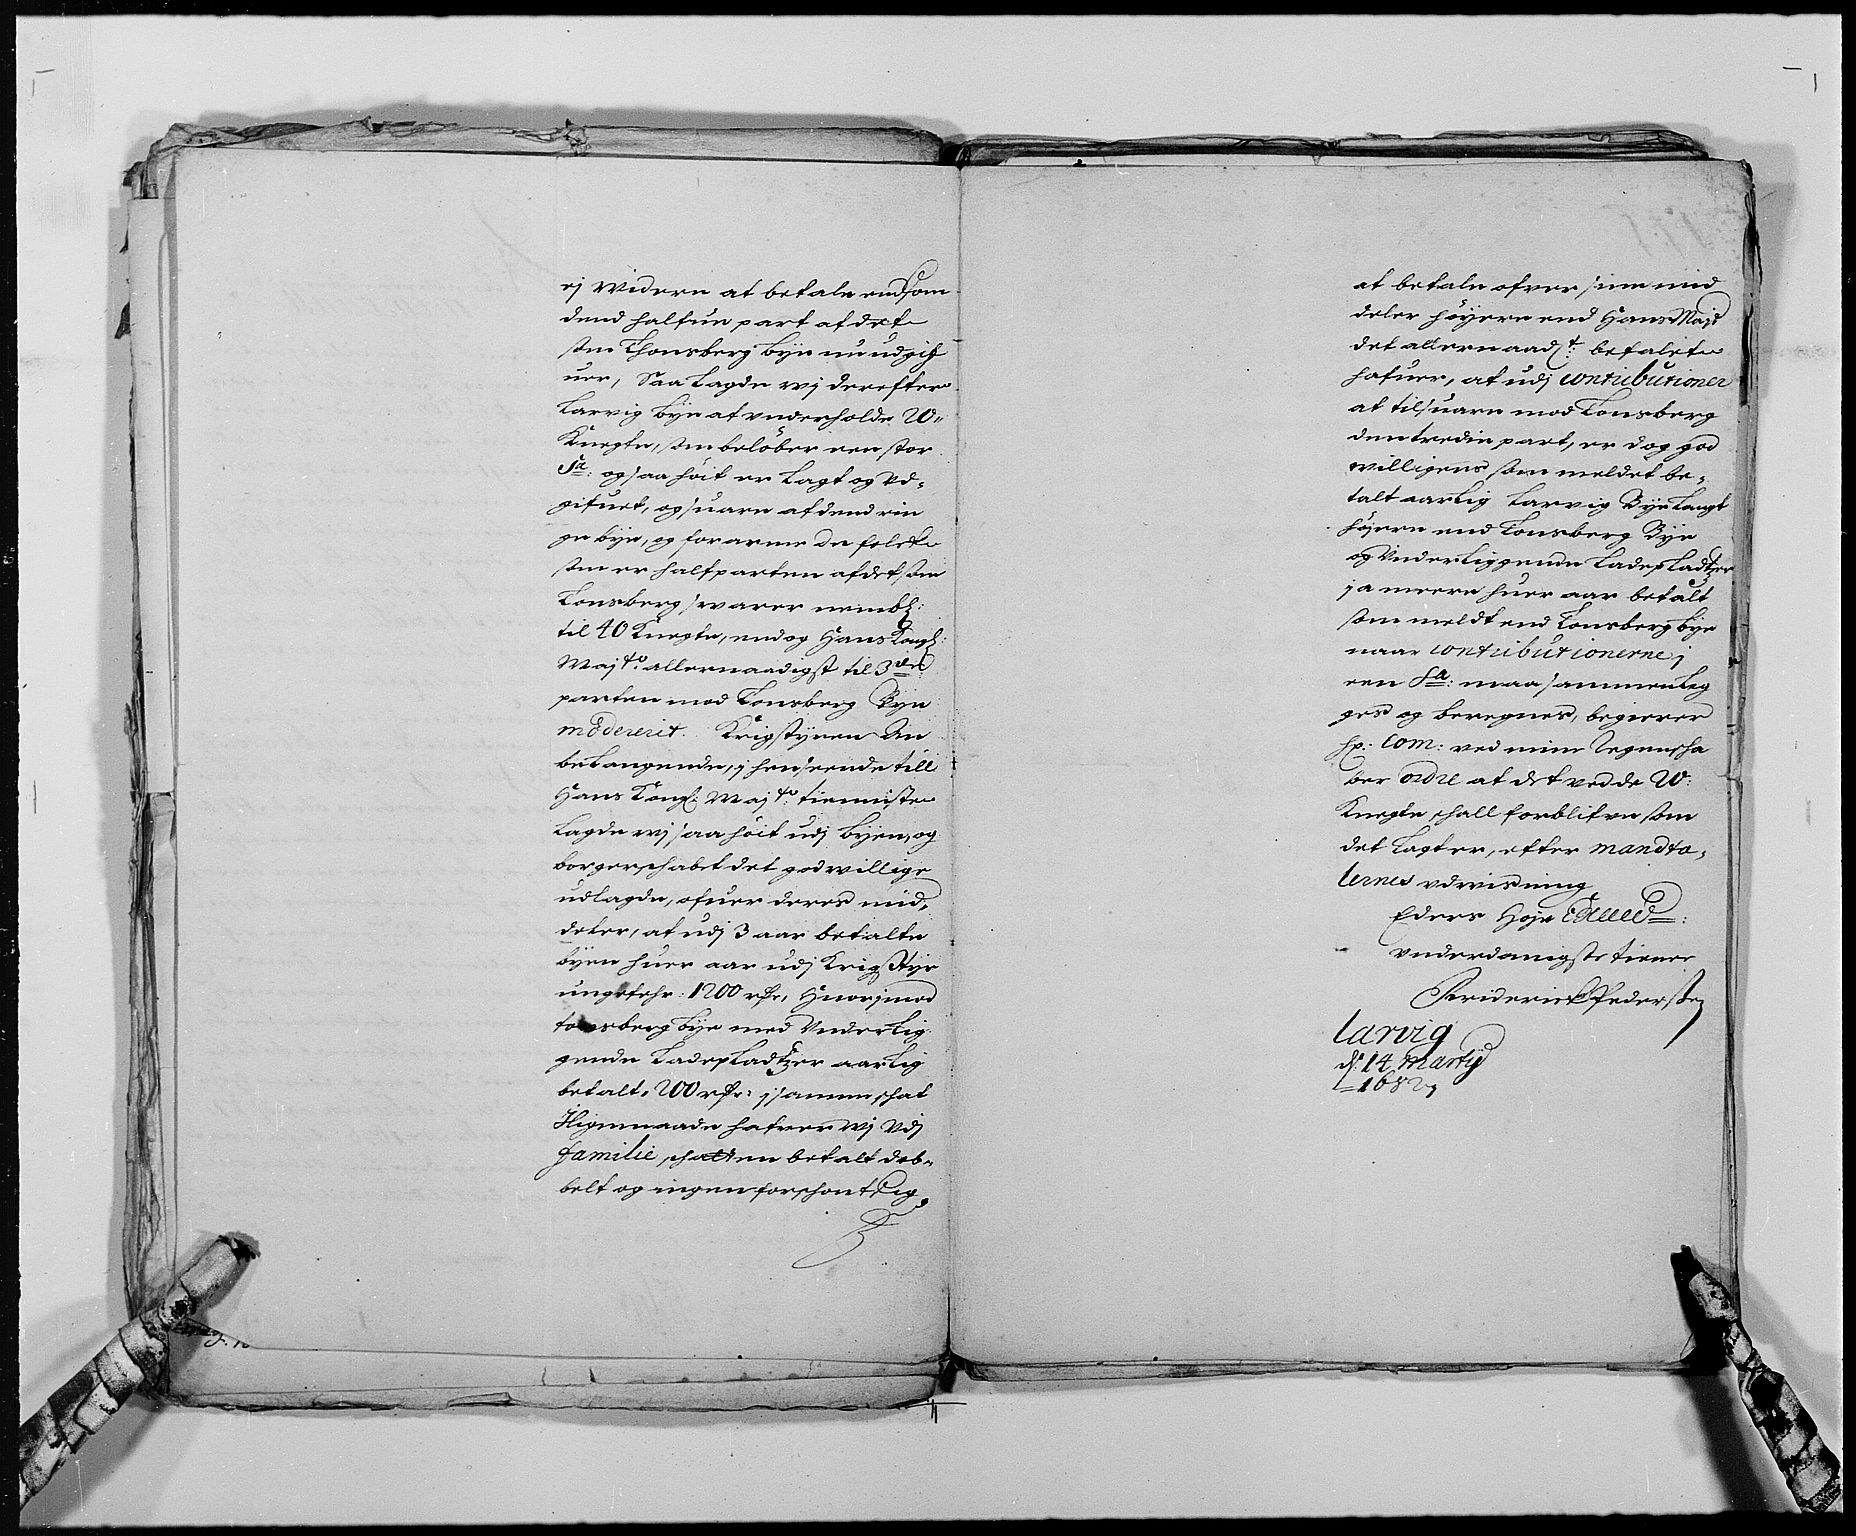 ej Widere at betale end som
dend halfue part af det
som Thonsberg bye nu udgif
uer, Saa lagde wj derefter
Larvig bye at vnderholde W:
Knegte, som beløber een stor
Sa: og saa høit er lagt og vd=
gifuet, og suare af dend rin
ge bye, og forarme de folck
som er halfparten af det som
Tonsberg swarer nembl:
til 40 Knegte, endog Hans Kongl:
Maj.tz allernaadigst til 3die
parten mod Tonsberg Bye
modererit. Krigstyren An
belangende, j henseende till
Hans Kongl: Maj.tz tienniste
lagde wj saa høit udj byen, og
borgerschabet det godwillige
udlagde, ofuer deres mid,
deler, at udj 3 aar betalte
byen huer aar udj Krigstyr
ungefehr: 1200 rdr, Huorimod
tonsberg bye med Vnderlig
gende Ladepladtzer aarlig
betalt. 200 rdr: j samme schat
Jligemaade hafver wj vdj
familie schatten betalt dob=
belt og ingen forschont sig
at betale ofver sine mid
deler høyere end Hans Mayt
det allernaad.t: befalet
hafuer, at udj Contributioner
at tilsuare mod Tonsberg
den tredie part, er dog god
willigens som meldet be=
talt aarlig Larvig Bye langt
høyere end Tonsberg Bye
og Vnderliggende Ladepladtzer
ja meere huer aar betalt
som meldt end Tonsberg bye
naar Contributionerne j
een Sa: maa sammenleg
ges og beregnes, begierer
hr: Com: ved mine Regenscha
ber ordre at det ved de W:
Knegte schall forblifve som
det lagt er, efter mandta=
lernes vdvisning
Eders Høye
vnderdanigste tiener
Friderick Pedersen
Larvig
d: 14 Martij
1682